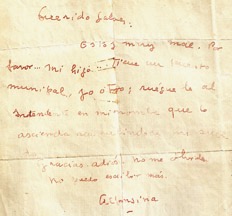 Querido Galvez:
Estoy muy mal. Por
favor... mi hijo... tiene un puesto
municipal, yo otro; ruegue le al
Intendente en mi nombre que lo
ascienda
Gracias. Adiós. no me
no puedo escribir más.
Alfonsina